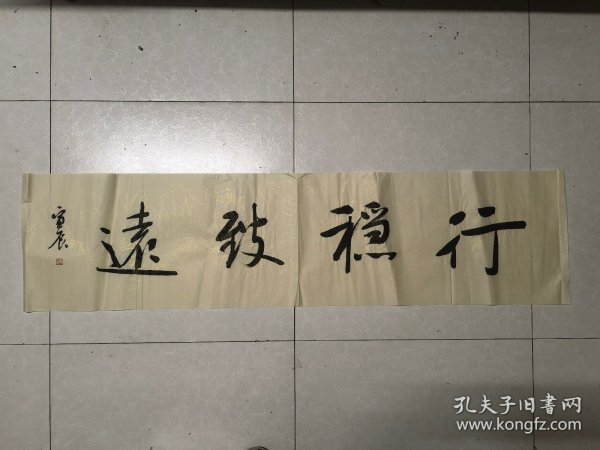 行穩致遠
孔夫子旧書网
www.kongfz.com